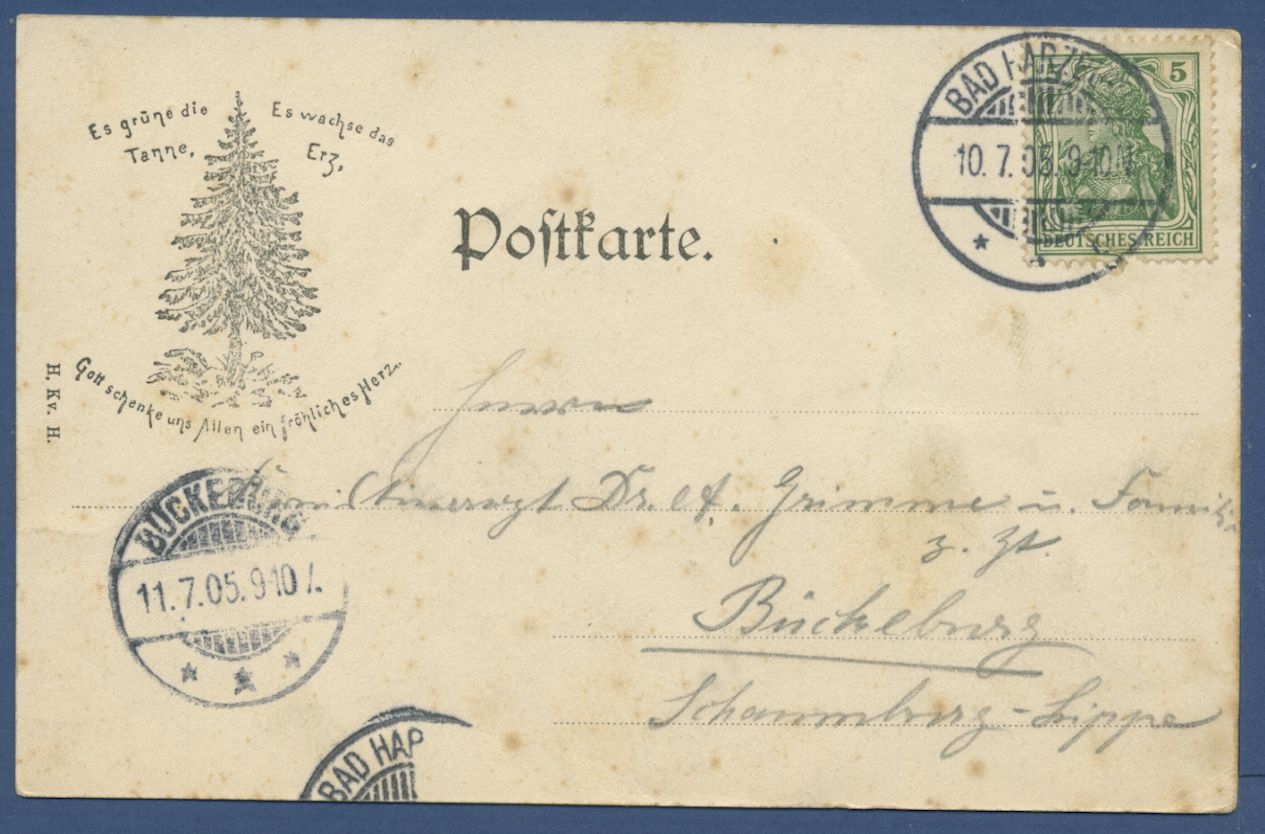 Es grüne die
Tanne,
Es wachse das
Erz,
Gott schenke uns Allen ein fröhliches Herz.
H. Kv. H.
Postkarte.
BAD HARZ
10. 7. 05. 9-10 N
5
DEUTSCHES REICH
Herrn
Dr. A. Grimme u. Familie
z. Zt.
Bückeburg
Schaumburg-Lippe
BÜCKEBURG
11. 7. 05. 9-10
BAD HAR